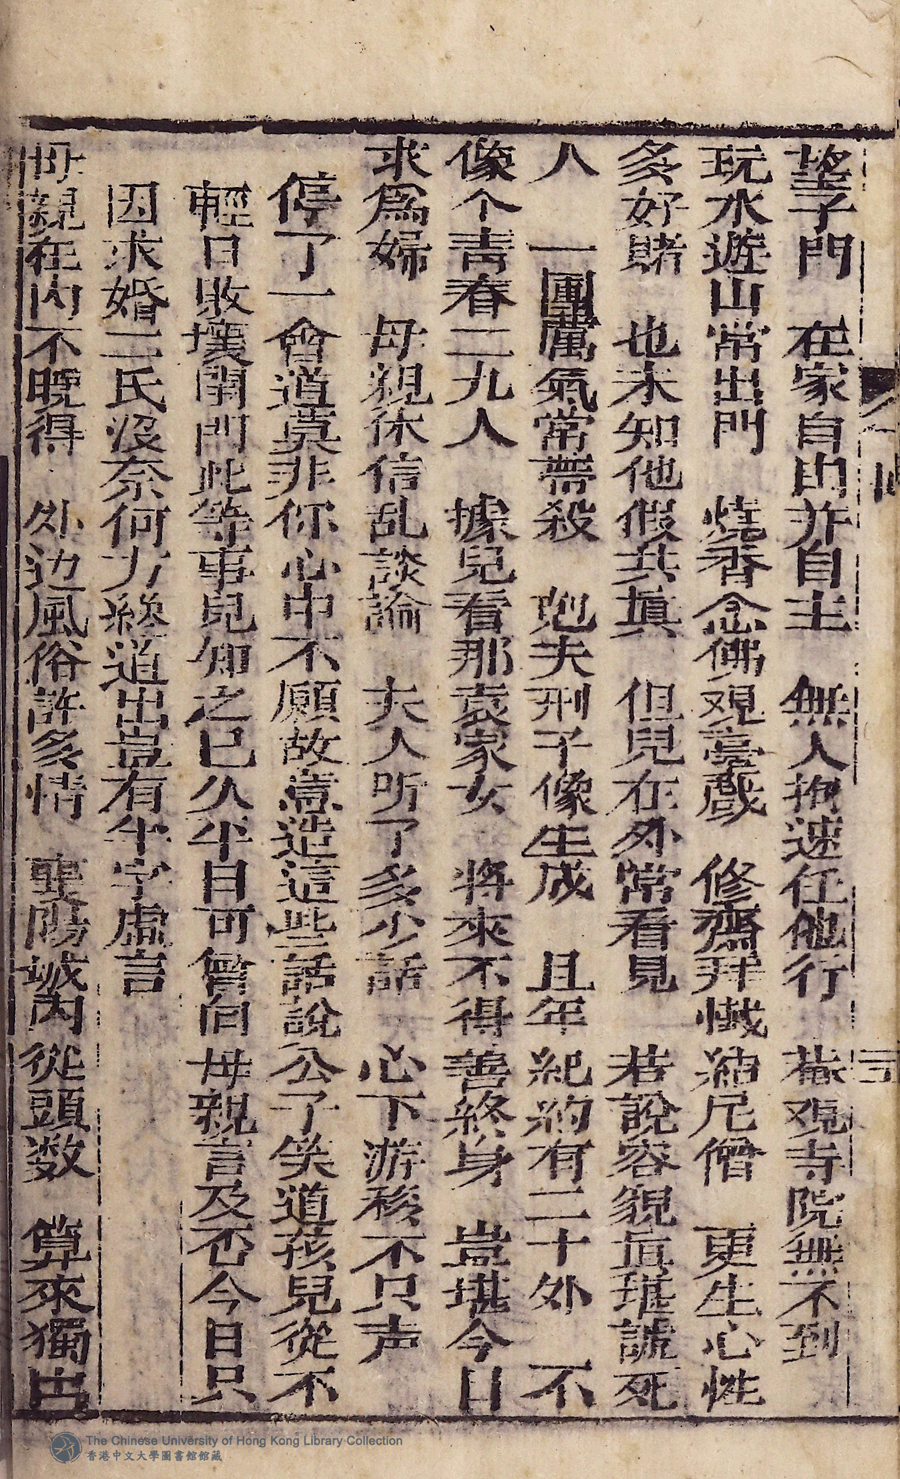 望子門　在家自由并自主　無人拘速任他行　菴观寺院無不到
玩水遊山常出門　焼香念佛观臺戯　修齋拜懴結尼僧　更生心性
多好賭　也未知他假共真　但兒在外常看見　若說容貌真堪諕死
人　一團厲氣常帶殺　尅夫刑子像生成　且年紀約有二十外　不
像个青春二九人　據兒看那袁家女　將來不得善終身　豈堪今日
求爲婦　母親休信乱談論　夫人听了多少話　心下游移不只声
停了一會道莫非你心中不願故意造這些話說公子笑道孩兒從不
輕口敗壞閨門此等事兒知之已久平日可曾向母親言及否今日只
因求婚二氏沒奈何方纔道出豈有半字虛言
母親在內不晚得　外边風俗許多情　襄陽城內從頭数　算來獨
The Chinese University of Hong Kong Library Collection
香港中文大學圖書館館藏